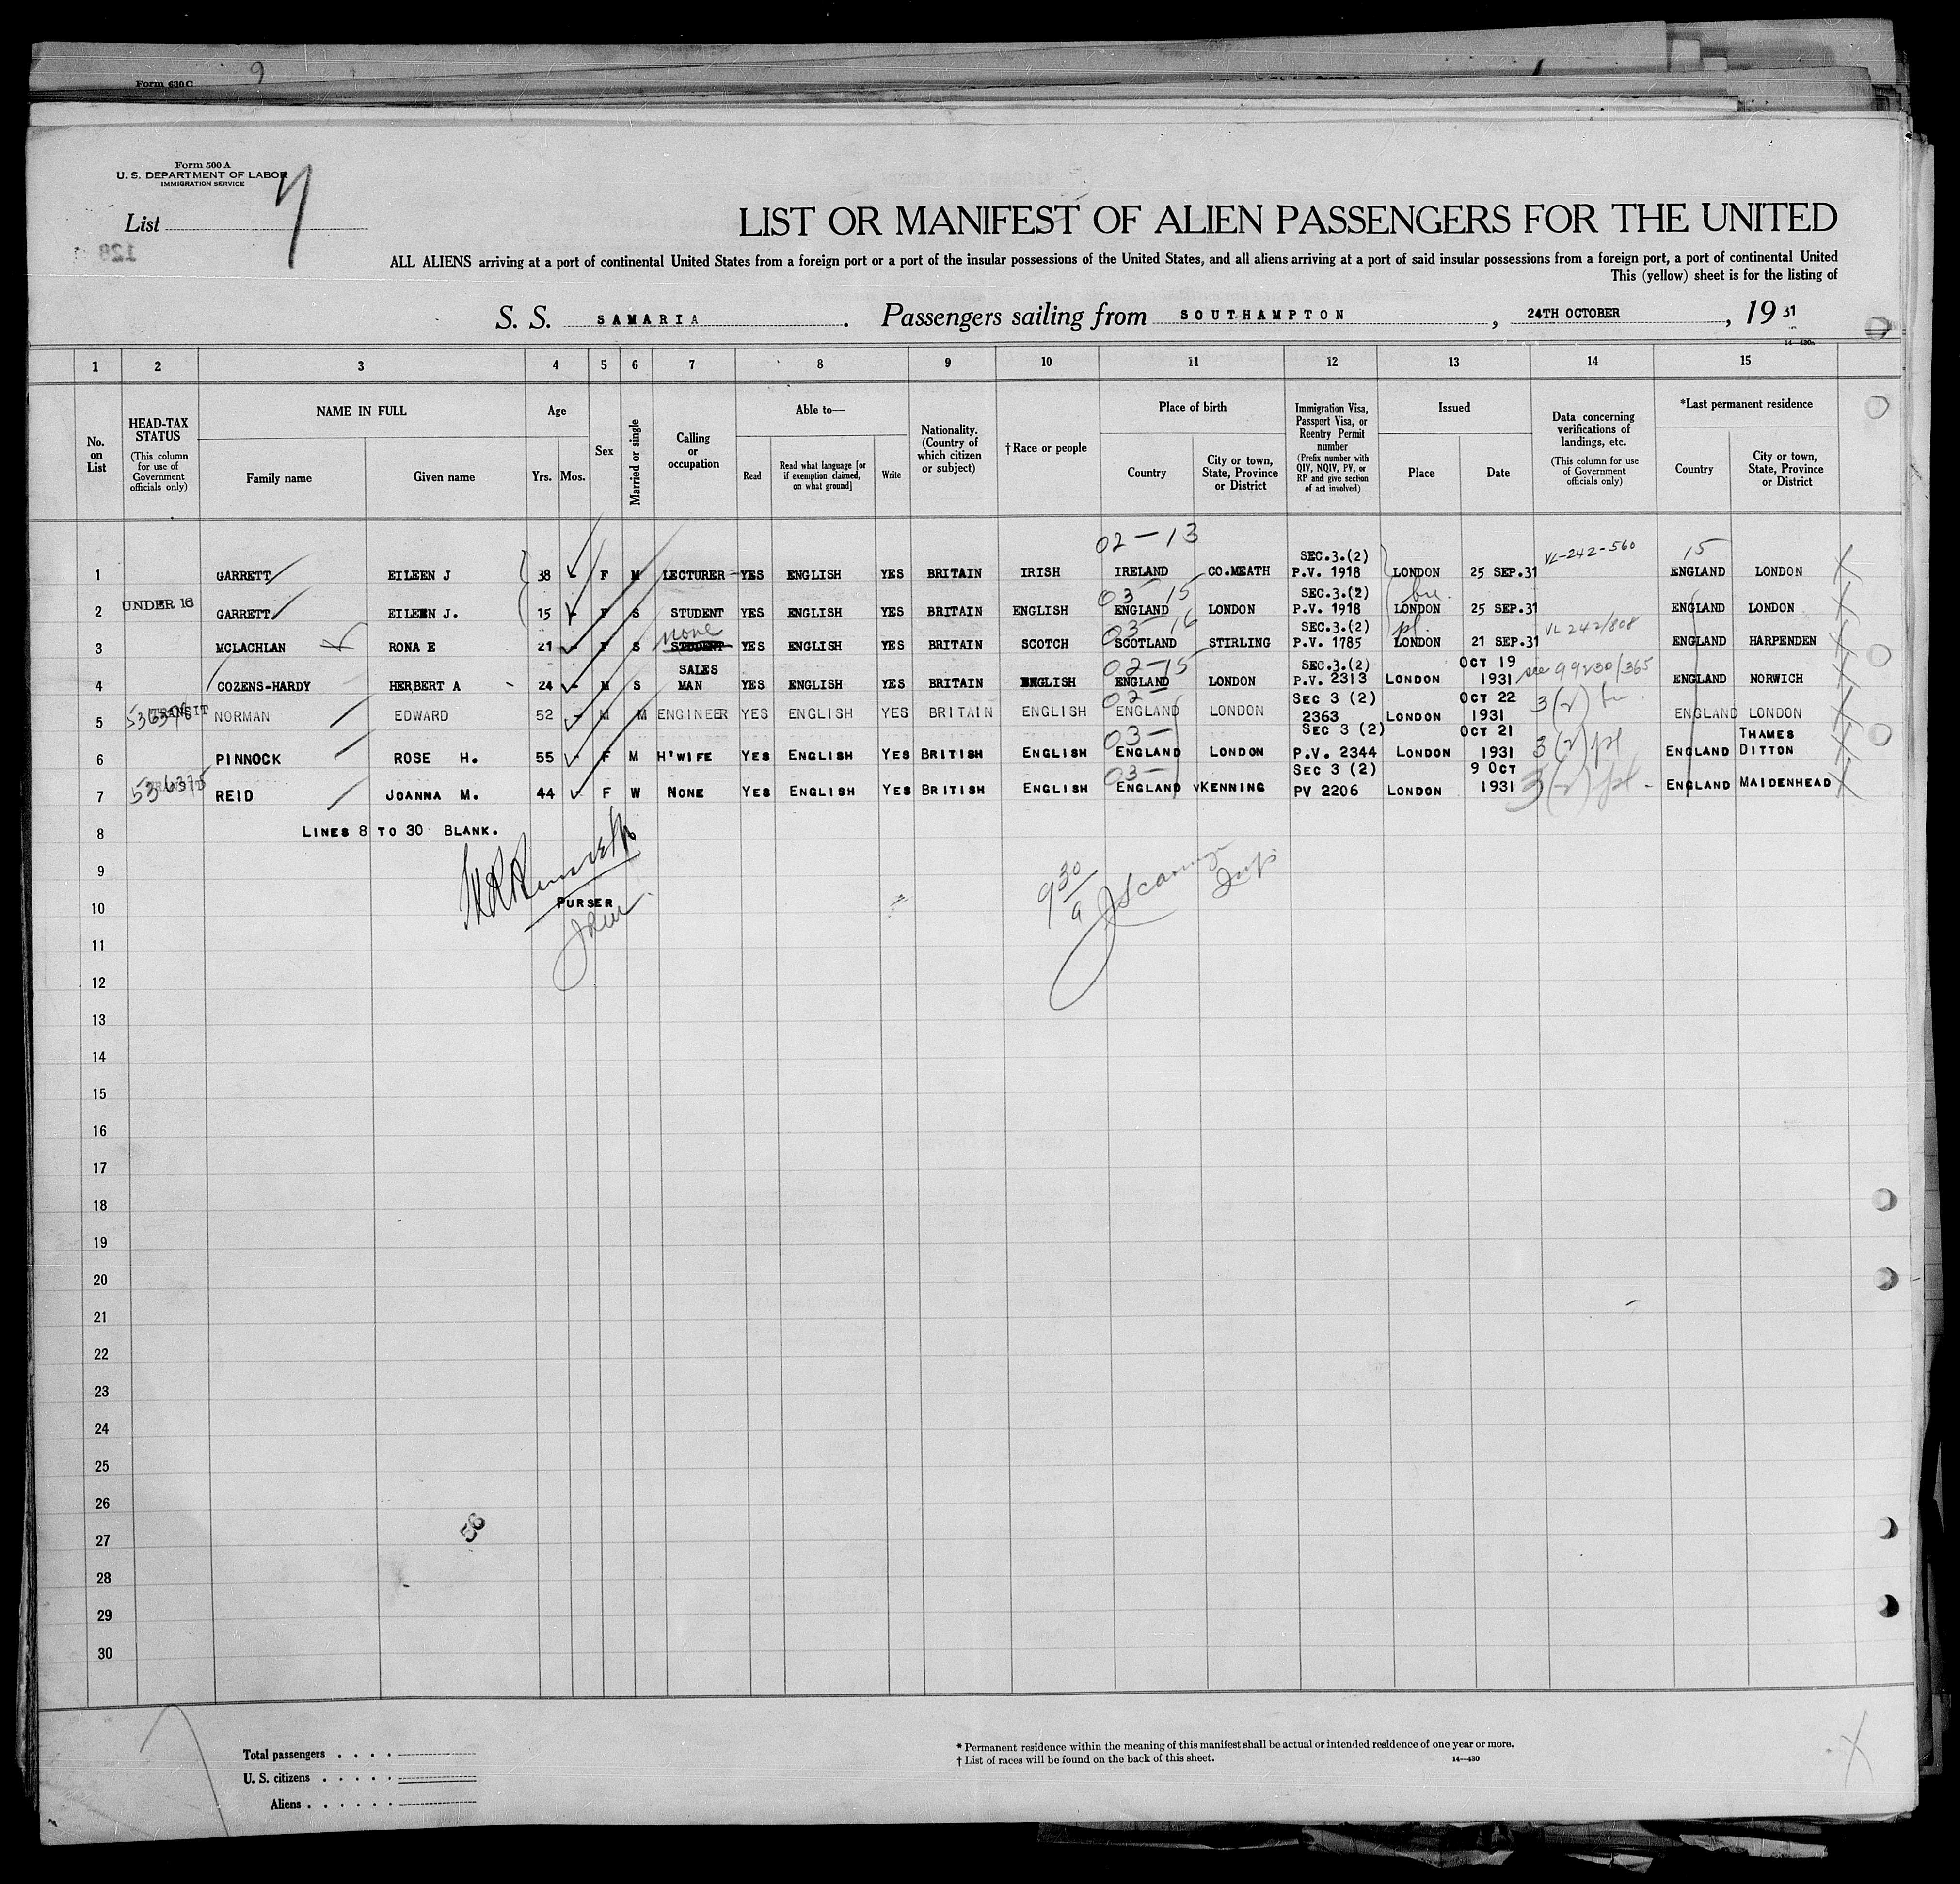 Form 630 C
9
Form 500 A
U. S. DEPARTMENT OF LABOR
IMMIGRATION SERVICE
List 7
128
LIST OR MANIFEST OF ALIEN PASSENGERS FOR THE UNITED
ALL ALIENS arriving at a port of continental United States from a foreign port or a port of the insular possessions of the United States, and all aliens arriving at a port of said insular possessions from a foreign port, a port of continental United
This (yellow) sheet is for the listing of
S. S. SAMARIA. Passengers sailing from SOUTHAMPTON, 24TH OCTOBER, 19 31
14—430a
1 2 3 4 5 6 7 8 9 10 11 12 13 14 15
No. on List
HEAD-TAX STATUS (This column for use of Government officials only)
NAME IN FULL
Family name Given name
Age
Yrs. Mos.
Sex
Married or single
Calling or occupation
Able to—
Read Read what language [or if exemption claimed, on what ground] Write
Nationality. (Country of which citizen or subject)
†Race or people
Place of birth
Country City or town, State, Province or District
Immigration Visa, Passport Visa, or Reentry Permit number (Prefix number with QIV, NQIV, PV, or RP and give section of act involved)
Issued
Place Date
Data concerning verifications of landings, etc. (This column for use of Government officials only)
*Last permanent residence
Country City or town, State, Province or District
02—13
SEC.3.(2) VL-242-560 15
1 GARRETT EILEEN J 38 - F M LECTURER YES ENGLISH YES BRITAIN IRISH IRELAND CO.MEATH P.V. 1918 LONDON 25 SEP.31 ENGLAND LONDON
03—15 SEC.3.(2)
2 UNDER 16 GARRETT EILEEN J. 15 - F S STUDENT YES ENGLISH YES BRITAIN ENGLISH ENGLAND LONDON P.V. 1918 LONDON 25 SEP.31 ENGLAND LONDON
none 03—16 SEC.3.(2) pl. VL 242/808
3 MCLACHLAN RONA E 21 - F S STUDENT YES ENGLISH YES BRITAIN SCOTCH SCOTLAND STIRLING P.V. 1785 LONDON 21 SEP.31 ENGLAND HARPENDEN
SALES 02—15 SEC.3.(2) OCT 19 see 99230/365
4 COZENS-HARDY HERBERT A 24 - M S MAN YES ENGLISH YES BRITAIN ENGLISH ENGLAND LONDON P.V. 2313 LONDON 1931 ENGLAND NORWICH
TRANSIT 02— SEC 3 (2) OCT 22 3(2)
5 NORMAN EDWARD 52 - M M ENGINEER YES ENGLISH YES BRITAIN ENGLISH ENGLAND LONDON 2363 LONDON 1931 ENGLAND LONDON
03— SEC 3 (2) OCT 21 3(2) pl THAMES
6 PINNOCK ROSE H. 55 - F M H'WIFE YES ENGLISH YES BRITISH ENGLISH ENGLAND LONDON P.V. 2344 LONDON 1931 ENGLAND DITTON
536375 03— SEC 3 (2) 9 OCT 3(2) pl.
7 REID JOANNA M. 44 F W NONE YES ENGLISH YES BRITISH ENGLISH ENGLAND KENNING PV 2206 LONDON 1931 ENGLAND MAIDENHEAD
8 LINES 8 TO 30 BLANK.
9
10 PURSER
9 30/a
11
12
13
14
15
16
17
18
19
20
21
22
23
24
25
26
27
58
28
29
30
Total passengers . . . .
U. S. citizens . . . . .
Aliens . . . . . .
* Permanent residence within the meaning of this manifest shall be actual or intended residence of one year or more.
† List of races will be found on the back of this sheet. 14—430